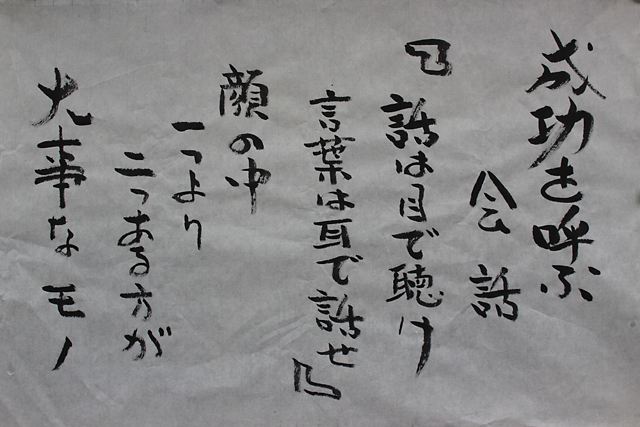 成功を呼ぶ
会話
『話は目で聴け
言葉は耳で話せ』
顔の中
一つより
二つある方が
大事なモノ